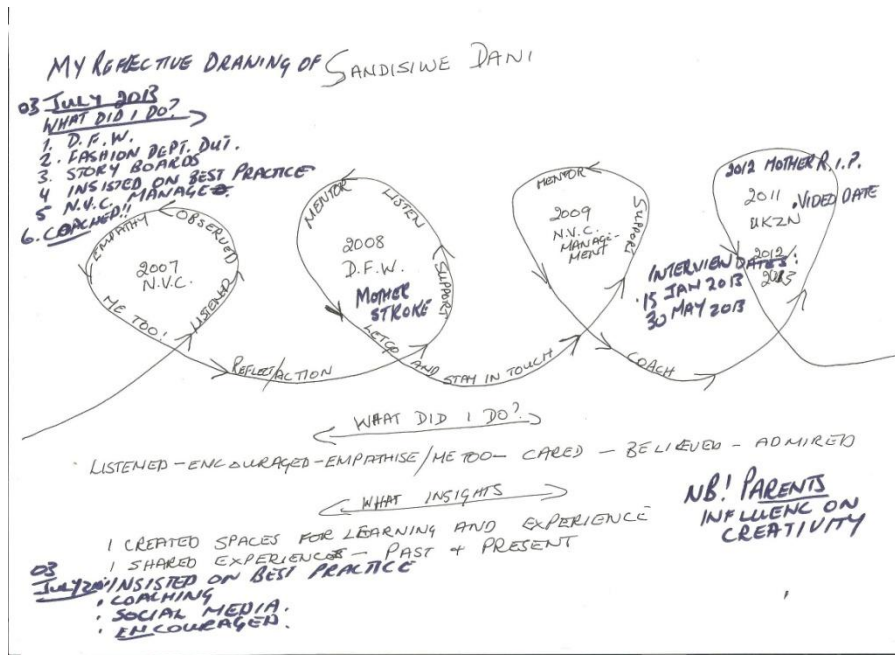 MY REFLECTIVE DRAWING OF SANDISIWE DANI
03 JULY 2013
WHAT DID I DO?
1. D.F.W.
2. FASHION DEPT. DUT.
3. STORY BOARDS
4 INSISTED ON BEST PRACTICE
5 N.V.C. MANAGE
6. COACHED!!
EMPATHY
OBSERVED
LISTENED
ME TOO!
2007
N.V.C.
REFLECT/ACTION
MENTOR
LISTEN
SUPPORT
2008
D.F.W.
MOTHER
STROKE
LETGO AND
STAY IN TOUCH
MENTOR
SUPPORT
2009
N.V.C.
MANAGE-
MENT
COACH
2012 MOTHER R.I.P.
2011 . VIDEO DATE
UKZN
2012/
2013
INTERVIEW DATES:
. 15 JAN 2013
30 MAY 2013
WHAT DID I DO?
LISTENED-ENCOURAGED-EMPATHISE/ME TOO- CARED - BELIEVED - ADMIRED
WHAT INSIGHTS
I CREATED SPACES FOR LEARNING AND EXPERIENCE
I SHARED EXPERIENCES - PAST + PRESENT
NB! PARENTS
INFLUENC ON
CREATIVITY
03
JULY
INSISTED ON BEST PRACTICE
. COACHING
. SOCIAL MEDIA.
. ENCOURAGED.